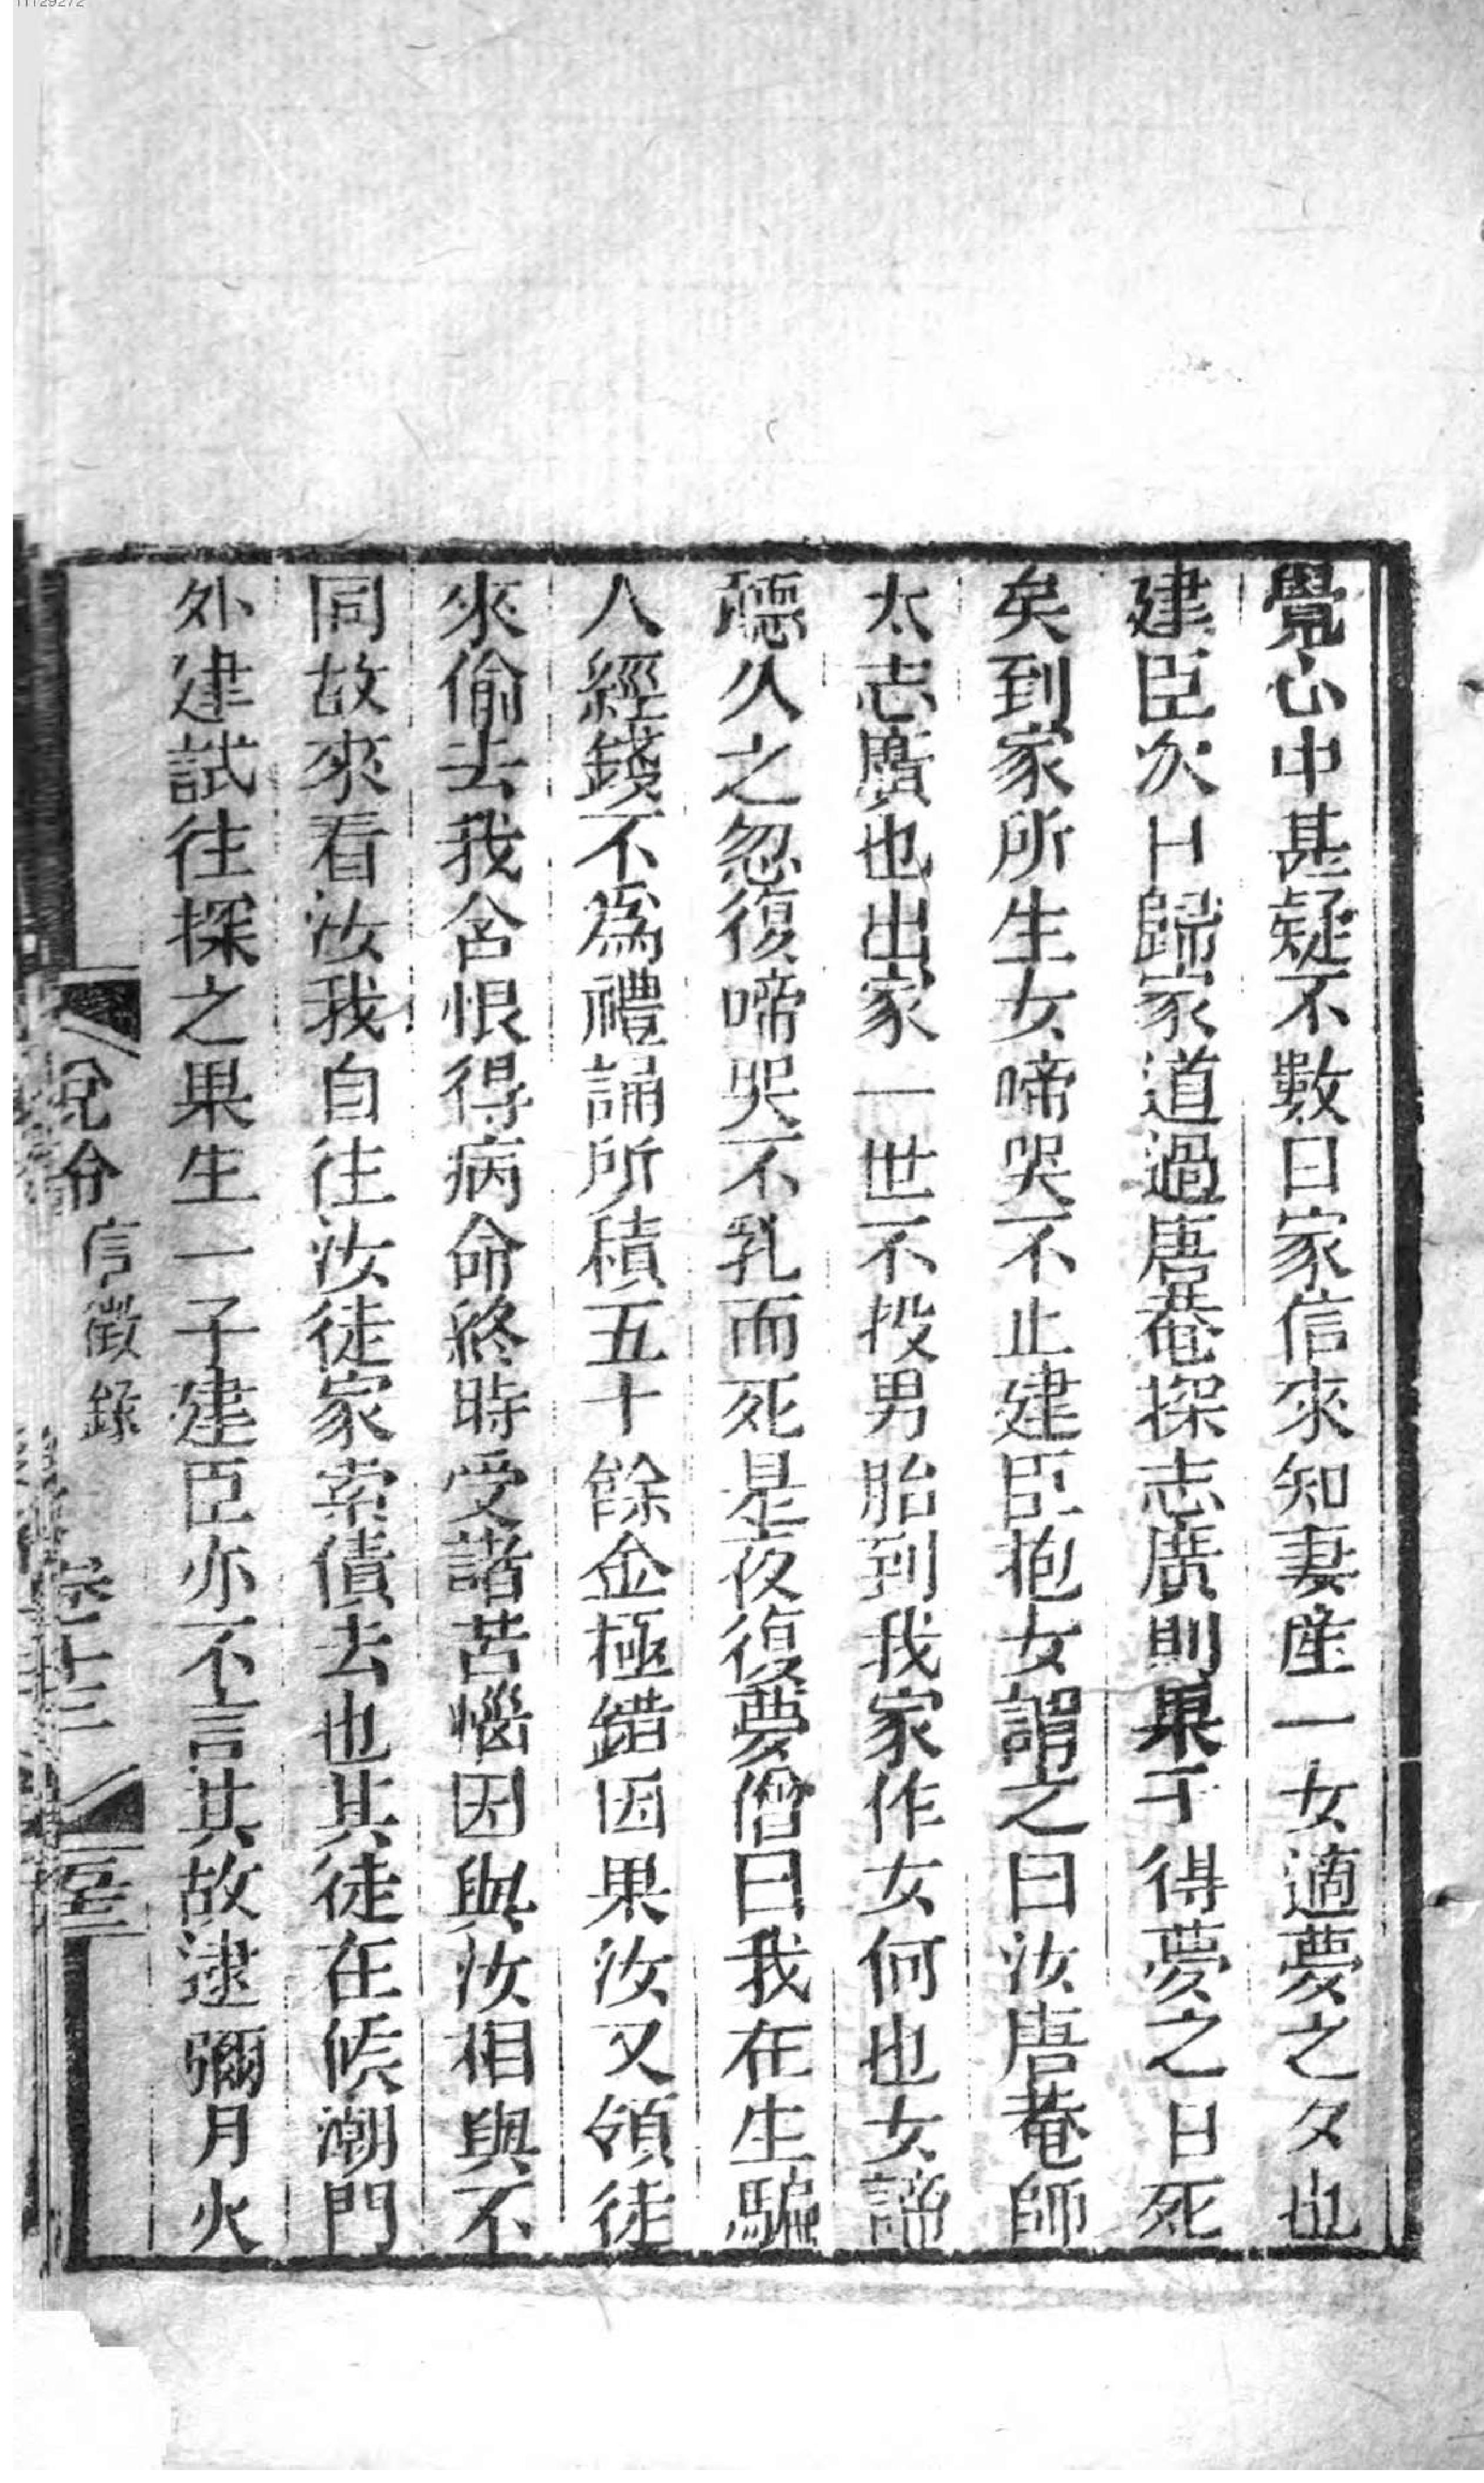 覺心中甚疑不數日家信來知妻產一女適夢之夕也
建臣次日歸家道過唐菴探志廣則果于得夢之日死
矣到家所生女啼哭不止建臣抱女謂之曰汝唐菴師
太志廣也出家一世不投男胎到我家作女何也女諦
聽久之忽復啼哭不乳而死是夜復夢僧曰我在生騙
人經錢不為禮誦所積五十餘金極錯因果汝又領徒
來偷去我含恨得病命終時受諸苦惱因與汝相與不
同故來看汝我自往汝徒家索債去也其徒在候潮門
外建試往探之果生一子建臣亦不言其故逮彌月火
兌命 信徵錄 卷十三
11129272